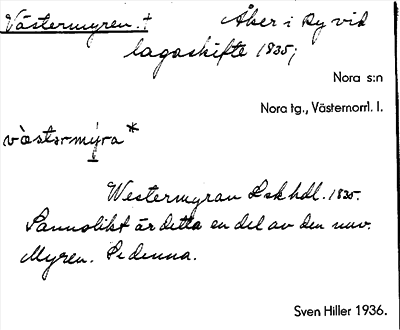 Västermyren. †
Åker i Ry vid
lagaskifte 1835;
Nora s:n
Nora tg., Västernorrl. l.
västərmýra*
Westermyran Lskhdl. 1835.
Sannolikt är detta en del av den nuv.
Myren. Se denna.
Sven Hiller 1936.